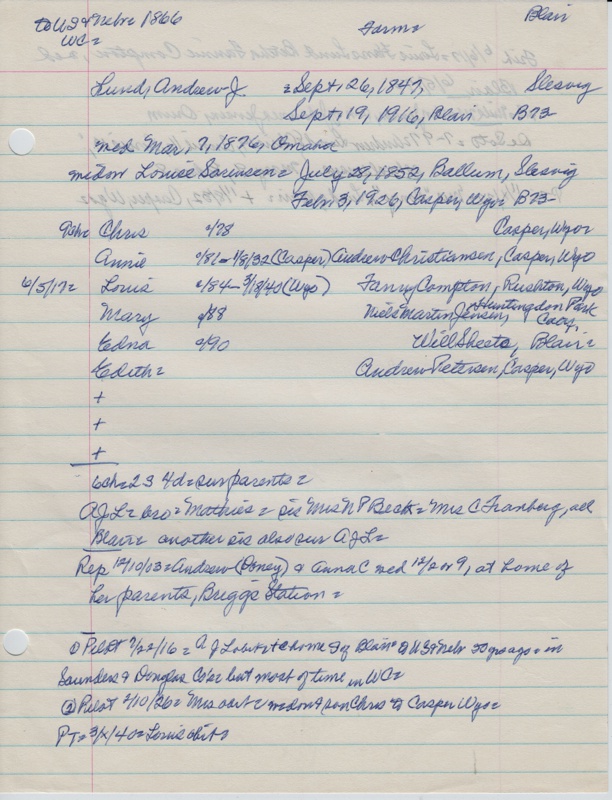 to US & Nebr = 1866 Farm = Blair
WC =
Lund, Andrew J. = Sept, 26, 1847, Slesvig
Sept, 19, 1916, Blair B73
med Mar. 7, 1876, Omaha
Louise Sorensen = July 28, 1852, Ballum, Slesvig
Febr 3, 1926, Casper, Wyo = B73
9ch = Chris /78 Casper, Wyo
Annie /81 - 1/8/32 (Casper) Andrew Christiansen, Casper, Wyo
6/5/17 = Louis /84 - 3/18/40 (Wyo) Fanny Compton, Rushton, Wyo
Mary /88 Niels Martin Jensen, Huntingdon Park
Edna /90 Will Sheets, Blair =
Edith = Andrew Petersen, Casper, Wyo
+
+
+
6ch = 2S 4d = sur parents =
A J L = bro = Mathies = sis Mrs N P Beck = Mrs C Franberg, all
Blair = another sis also sur A J L =
Rep 12/10/03 = Andrew & Anna C med 12/2 or 9, at home of
her parents, Briggs Station =
① Pilot 9/22/16 = A J L obit & home of Blair = US & Nebr 50 yrs ago = in
Saunders & Douglas Co's = but most of time in WC =
② Pilot 2/10/26 = Mrs obit = & son Chris Casper Wyo =
PT = 3/x/40 = Louis obit